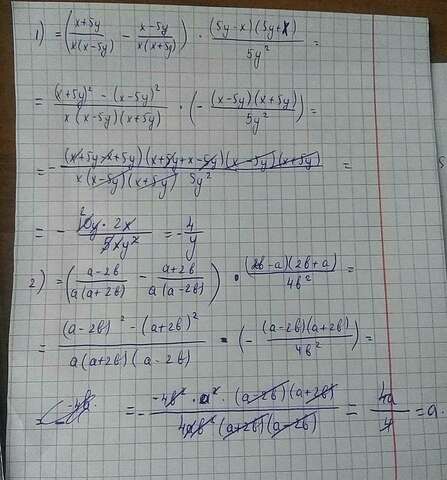 1) = (x+5y / x(x-5y) - x-5y / x(x+5y)) · (5y-x)(5y+x) / 5y² =
= (x+5y)² - (x-5y)² / x(x-5y)(x+5y) · (- (x-5y)(x+5y) / 5y²) =
= - (x+5y-x+5y)(x+5y+x-5y)(x-5y)(x+5y) / x(x-5y)(x+5y) 5y² =
= - 10y · 2x / 5xy² = - 4 / y
2) = (a-2b / a(a+2b) - a+2b / a(a-2b)) · (2b-a)(2b+a) / 4b² =
= (a-2b)² - (a+2b)² / a(a+2b)(a-2b) · (- (a-2b)(a+2b) / 4b²) =
= - -4b² · a² · (a-2b)(a+2b) / 4ab² (a+2b)(a-2b) = 4a / 4 = a.